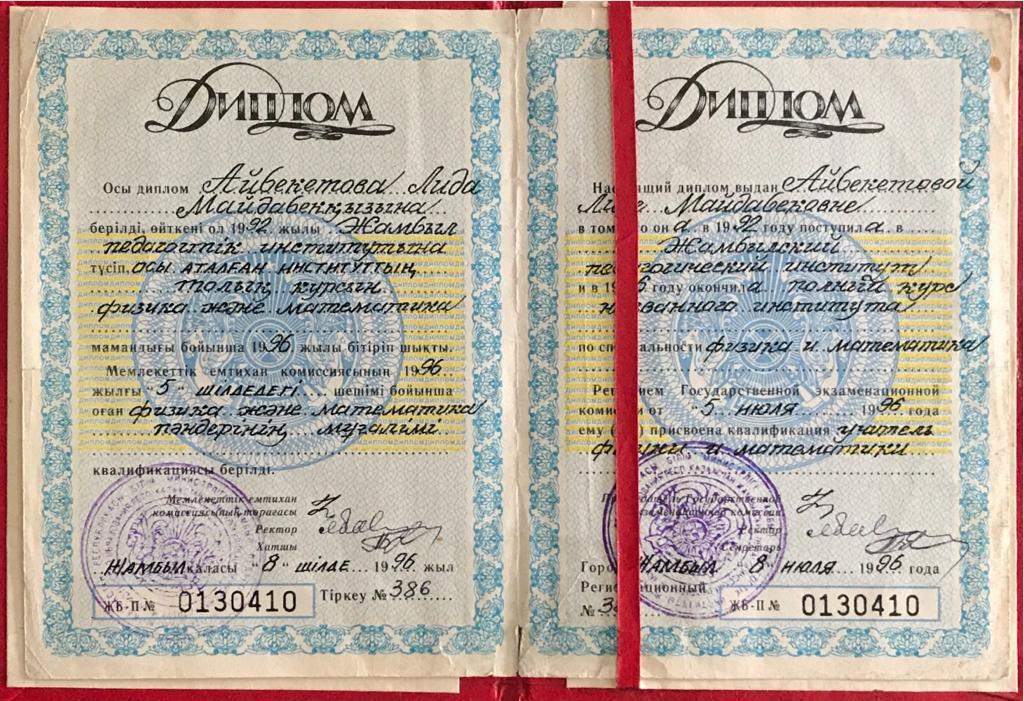 Диплом
Осы диплом Айбекетова Лида
Майдабекқызына
берілді, өйткені ол 1992 жылы Жамбыл
педагогтік институтына
түсіп, осы аталған институттың
толық курсын
физика және математика
мамандығы бойынша 1996 жылы бітіріп шықты.
Мемлекеттік емтихан комиссиясының 1996
жылғы "5" шілдедегі шешімі бойынша
оған физика және математика
пәндерінің мұғалімі
квалификациясы берілді.
Мемлекеттік емтихан
комиссиясының төрағасы
Ректор
Хатшы
Жамбыл қаласы "8" шілде 1996 жыл
ЖБ-П № 0130410 Тіркеу № 386
Диплом
диплом выдан Айбекетовой
Майдабековне
в том он а в 1992 году поступила в
Жамбылский
педагогический институт
и в 19 6 году окончила полный курс
института
по физика и математика
Государственной экзаменационной
от "5" июля 1996 года
ему присвоена квалификация учитель
и математики
Государственной
комиссии
Ректор
Секретарь
Жамбыл "8" июля 1996 года
№ ЖБ-П № 0130410